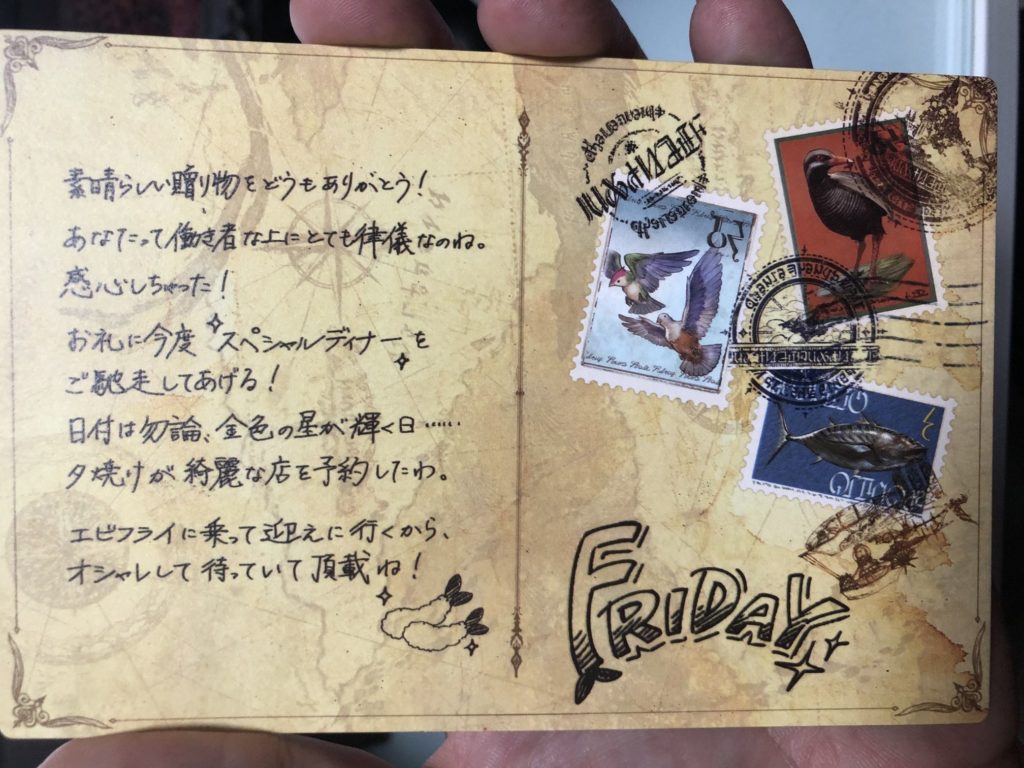 素晴らしい贈り物をどうもありがとう!
あなたって働き者な上にとても律儀なのね。
感心しちゃった!
お礼に今度スペシャルディナーを
ご馳走してあげる!
日付は勿論、金色の星が輝く日……
夕焼けが綺麗な店を予約したわ。
エビフライに乗って迎えに行くから、
オシャレして待っていて頂載ね!
FRIDAY